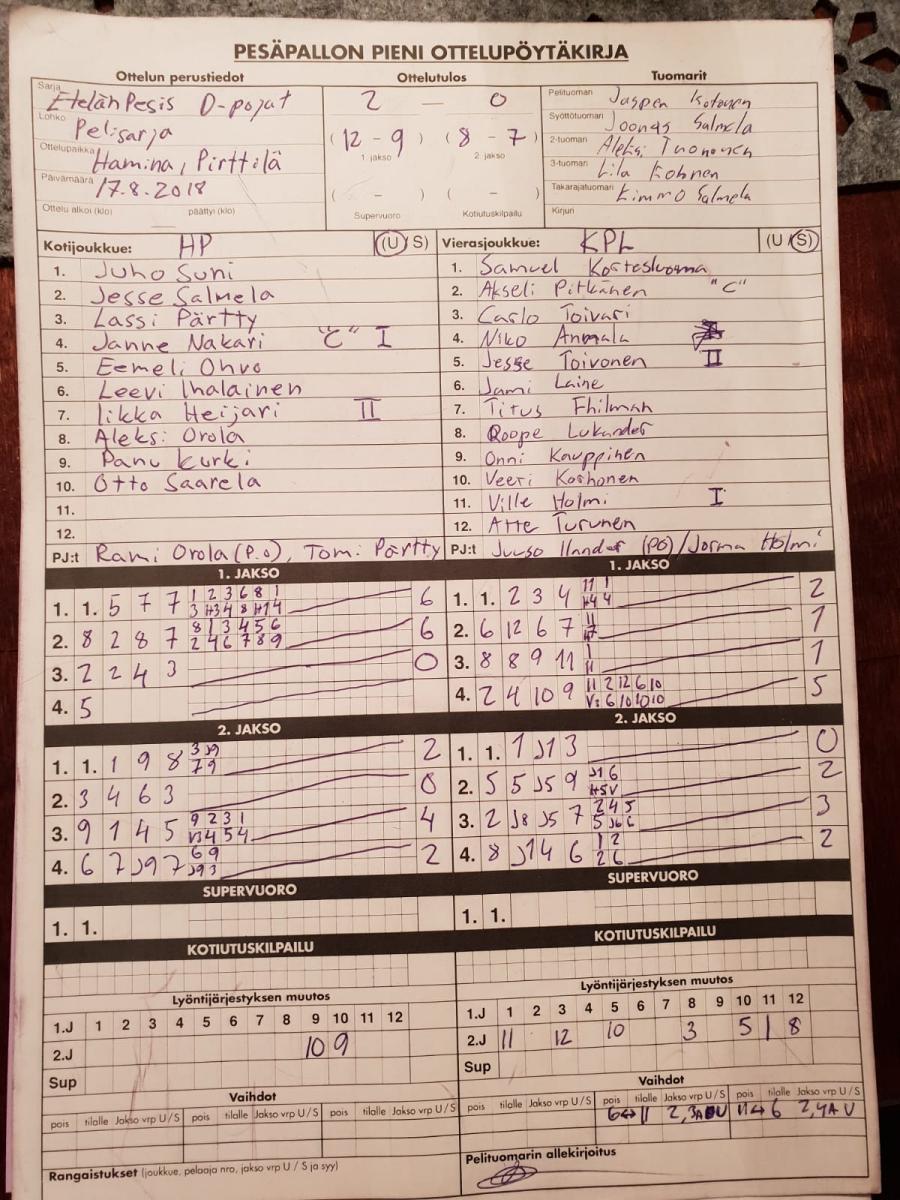 PESÄPALLON PIENI OTTELUPÖYTÄKIRJA
Ottelun perustiedot Ottelutulos Tuomarit
Sarja EtelänPesis D-pojat
Lohko Pelisarja
Ottelupaikka Hamina, Pirttilä
Päivämäärä 17.8.2018
Ottelu alkoi (klo) päättyi (klo)
2 — 0
(12 - 9) (8 - 7)
1. jakso 2. jakso
( - ) ( - )
Supervuoro Kotiutuskilpailu
Pelituomari Kotonen
Syöttötuomari Joonas Salmela
2-tuomari Aleksi Tuononen
3-tuomari
Takarajatuomari Kimmo Salmela
Kirjuri
Kotijoukkue: HP (U/S)
1. Juho Suni
2. Jesse Salmela
3. Lassi Pärtty
4. Janne Nakari "C" I
5. Eemeli Ohvo
6. Leevi Ihalainen
7. Iikka Heijari II
8. Aleksi Orola
9. Panu Kurki
10. Otto Saarela
11.
12.
PJ:t Rami Orola (P.O), Tomi Pärtty
Vierasjoukkue: KPL (U/S)
1. Samuel
2. Akseli Pitkänen "C"
3. Carlo Toivari
4. Niko Anmala
5. Jesse Toivonen II
6. Jami Laine
7. Titus Fhilman
8. Roope Lukander
9. Onni Kauppinen
10. Veeri Korhonen
11. Ville Holmi I
12. Atte Turunen
PJ:t Juuso (PO) / Jorma Holmi
1. JAKSO
1. 1. 5 7 7 1 2 3 6 8 1 6
2. 8 2 8 7 8 1 3 4 5 6 6
2 4 6 7 8 9
3. 2 2 4 3 0
4. 5
1. JAKSO
1. 1. 2 3 4 11 1 2
2. 6 12 6 7 11 1
3. 8 8 9 11 1 1
4. 2 4 10 9 11 2 12 6 10 5
2. JAKSO
1. 1. 1 9 8 3 J9 2
7 9
2. 3 4 6 3 0
3. 9 1 4 5 9 2 3 1 4
4. 6 7 J9 7 6 9 2
J9 3
2. JAKSO
1. 1. 1 J1 3 0
2. 5 5 J5 9 J1 6 2
3. 2 J8 J5 7 2 4 5 3
5 J6 6
4. 8 J1 4 6 1 2 2
2 6
SUPERVUORO
1. 1.
SUPERVUORO
1. 1.
KOTIUTUSKILPAILU
KOTIUTUSKILPAILU
Lyöntijärjestyksen muutos
1.J 1 2 3 4 5 6 7 8 9 10 11 12
2.J 10 9
Sup
Lyöntijärjestyksen muutos
1.J 1 2 3 4 5 6 7 8 9 10 11 12
2.J 11 12 10 3 5 1 8
Sup
Vaihdot
pois tilalle Jakso vrp U/S pois tilalle Jakso vrp U/S pois tilalle Jakso vrp U/S
Vaihdot
pois tilalle Jakso vrp U/S pois tilalle Jakso vrp U/S pois tilalle Jakso vrp U/S
6↔11 11↔6 2,4A U
Rangaistukset (joukkue, pelaaja nro, jakso vrp U / S ja syy)
Pelituomarin allekirjoitus